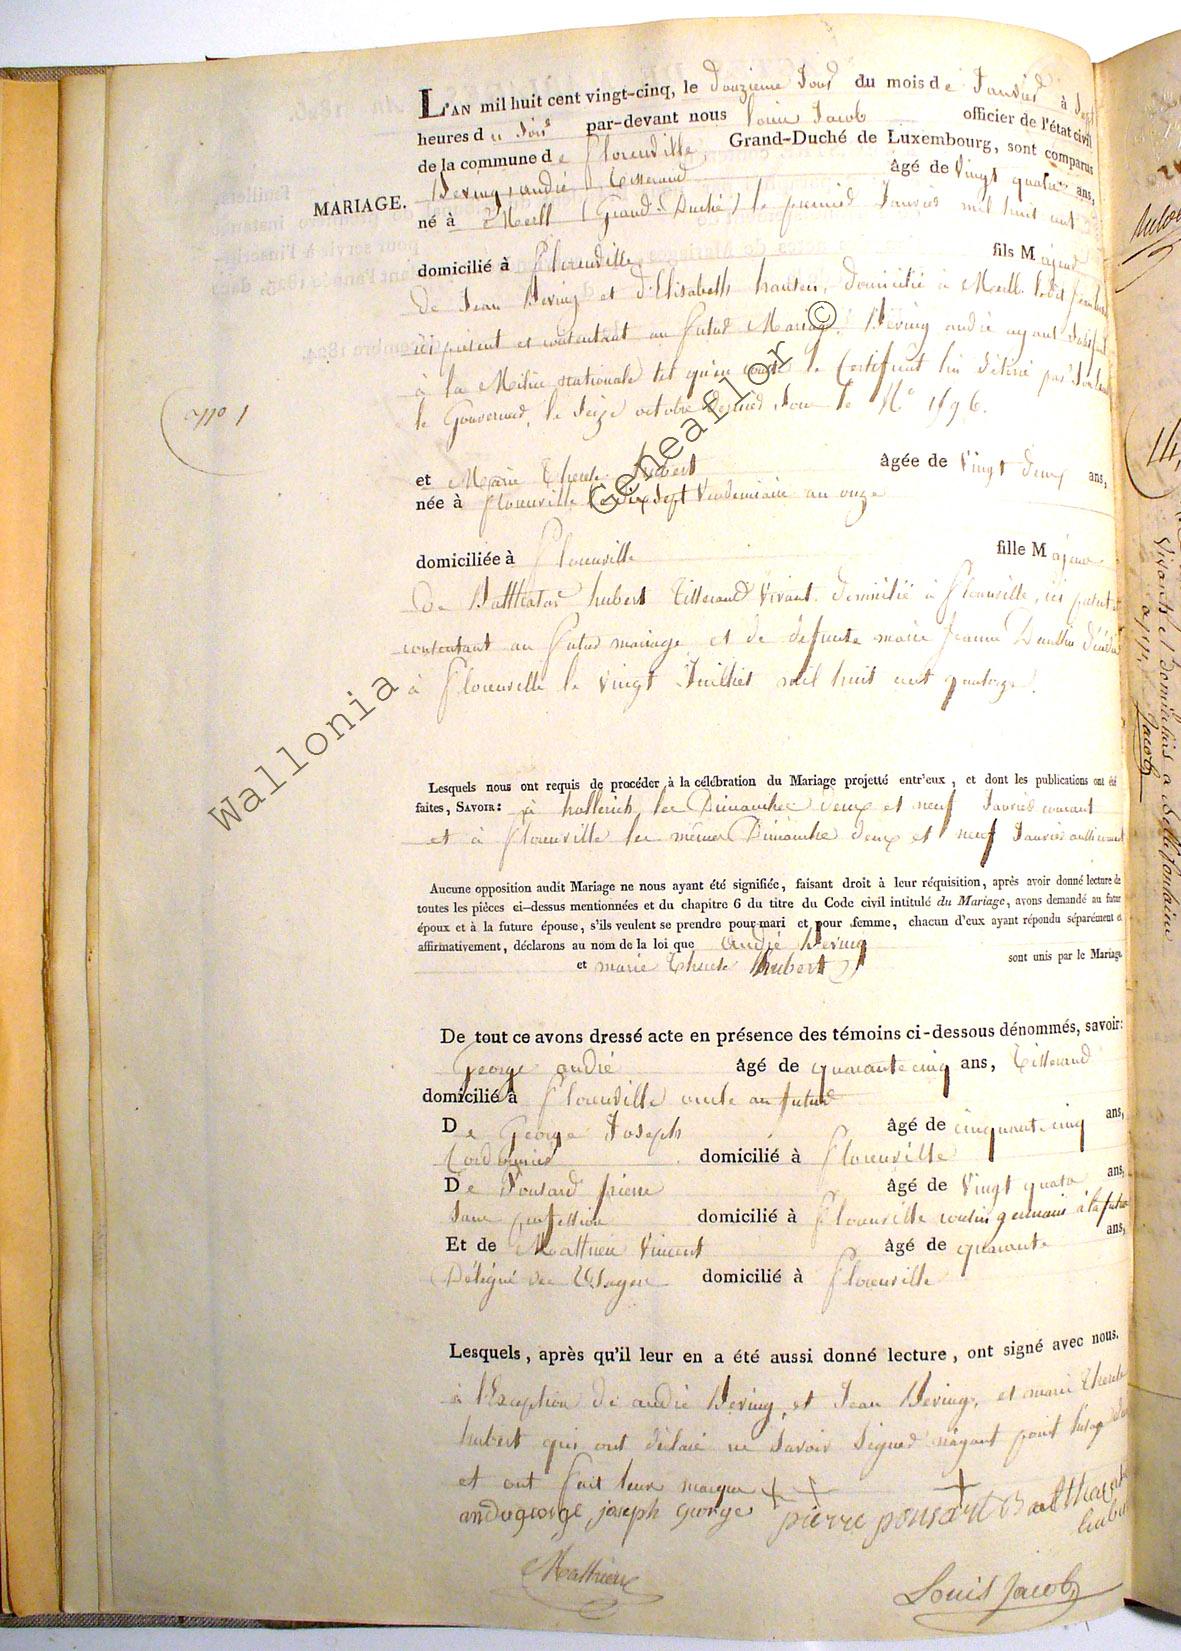 L'AN mil huit cent vingt-cinq, le Douzieme Jour du mois de Janvier à Sept
heures du Soir par-devant nous Louis Jacob officier de l'état civil
de la commune de florenville Grand-Duché de Luxembourg, sont comparus
Bering andré Tisserand âgé de Vingt quatre ans,
MARIAGE.
né à Merll (Grand Duché) le premier Janvier mil huit cent
domicilié à florenville fils Majeur
De Jean Bering et d'Elisabeth hansen, domicilié à Merll
ici présent et consentant au futur Mariage. Bering andré ayant
à la Milice nationale tel qu'en le Certificat lui délivré par
le Gouverneur, le Seize octobre dernier Sous le N° 1896.
N° 1
et Marie Therese hubert âgée de Vingt deux ans,
née à florenville le dix Sept Vendemiaire an onze
domiciliée à florenville fille Majeure
De Balthazar hubert Tisserand Vivant domicilié à florenville, ici présent
consentant au futur mariage et de defunte marie Jeanne
à florenville le Vingt Juillet mil huit cent quatorze.
Lesquels nous ont requis de procéder à la célébration du Mariage projetté entr'eux, et dont les publications ont été
faites, SAVOIR: à hollerich les Dimanches deux et neuf Janvier courant
et à florenville les mêmes Dimanche deux et neuf Janvier aussi courant
Aucune opposition audit Mariage ne nous ayant été signifiée, faisant droit à leur réquisition, après avoir donné lecture de
toutes les pièces ci-dessus mentionnées et du chapitre 6 du titre du Code civil intitulé du Mariage, avons demandé au futur
époux et à la future épouse, s'ils veulent se prendre pour mari et pour femme, chacun d'eux ayant répondu séparément et
affirmativement, déclarons au nom de la loi que andré Bering
et marie Therese hubert sont unis par le Mariage
De tout ce avons dressé acte en présence des témoins ci-dessous dénommés, savoir:
George andré âgé de quarante cinq ans, Tisserand
domicilié à florenville oncle au futur
De George Joseph âgé de cinquante cinq ans,
Cordonnier domicilié à florenville
De Ponsard pierre âgé de Vingt quatre ans,
Sans profession domicilié à florenville cousin germain à la future
Et de Mathieu Vincent âgé de quarante ans,
Délégué domicilié à florenville
Lesquels, après qu'il leur en a été aussi donné lecture, ont signé avec nous.
à l'Exception de andré Bering, et Jean Bering, et marie Therese
hubert qui ont déclaré ne Savoir Signer n'ayant point l'usage
et ont fait leur marque + + +
george joseph george pierre ponsart Balthazart
hubert
Mathieu
Louis Jacob
Wallonia Geneaflor ©